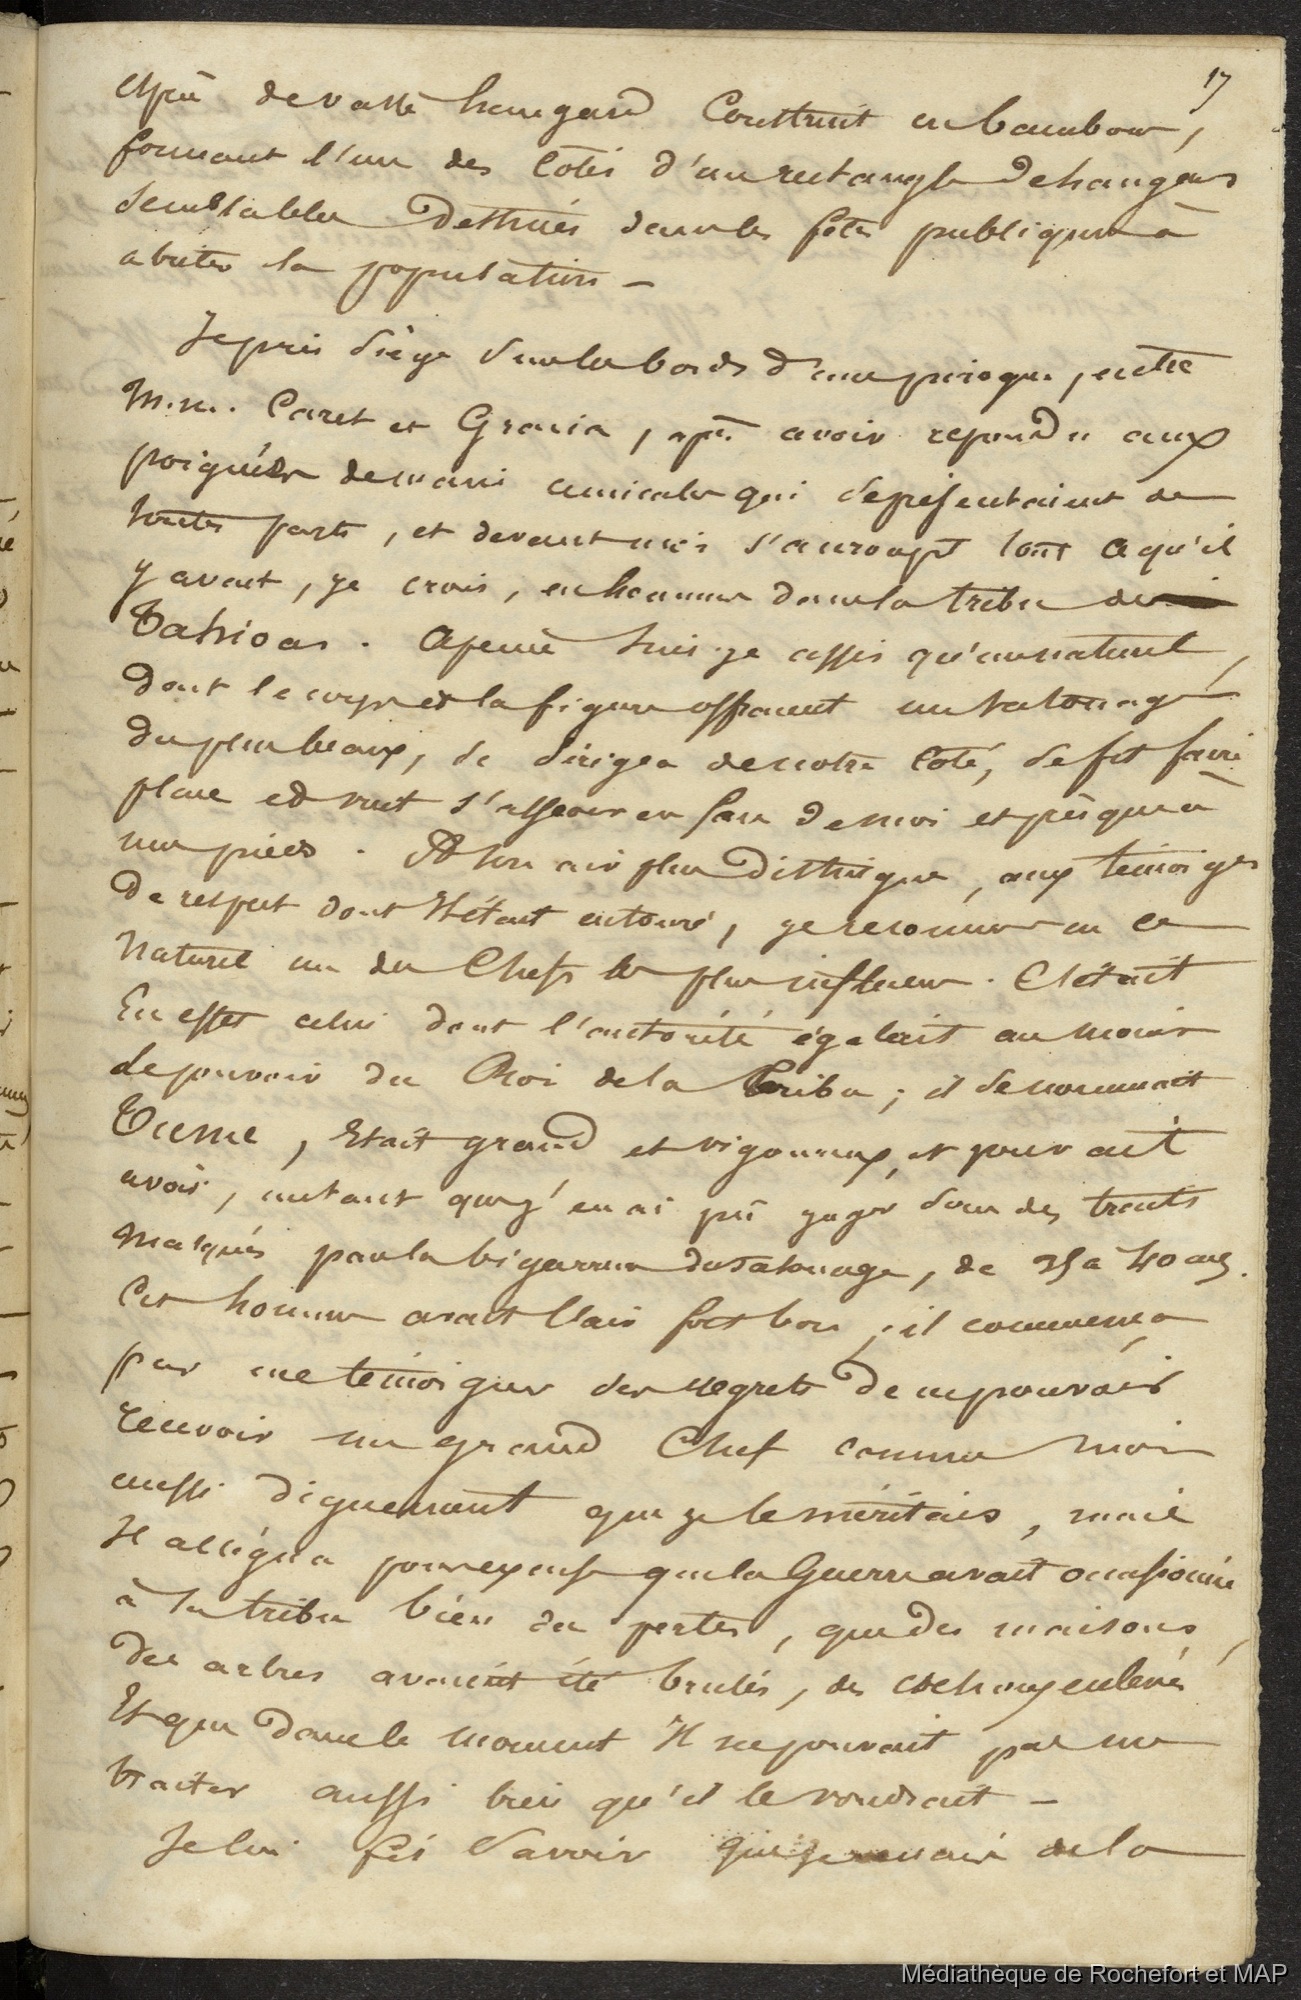 17
espèce de vaste hangard Construit en bambou,
formant l'un des Côtés d'un rectangle de hangars
Semblables Destinés dans les fêtes publiques à
abriter la population _
Je pris siège sur les bords d'une pirogue, entre
M.M. Caret et Gracia, après avoir repondu aux
poignées de mains amicales qui se présentaient de
toutes parts, et devant moi s'accroupit tout ce qu'il
y avait, je crois, en hommes dans la tribu des
Tahioas. A peine suis-je assis qu'un naturel,
dont le corps et la figure offraient un tatouage
du plus beaux, se dirigea de notre Côté, se fit faire
place et vint s'asseoir en face de moi et presque à
mes pieds. A son air plus Distingué, aux témoignages
De respect dont Il était entouré, je reconnus en ce
Naturel un des Chefs les plus influens. C'était
En effet celui dont l'autorité égalait au moins
le pouvoir du Roi de la Tribu ; il se nommait
, Etait grand et vigoureux, et pouvait
avoir, autant que j'en ai pû juger sous des traits
Masqués par la bigarrure du Tatouage, de 35 à 40 ans.
Cet homme avait l'air fort bon ; il commença
par me témoigner des regrets De ne pouvoir
recevoir un grand Chef comme moi
aussi dignement que je le méritais, mais
Il allégua pour excuse que la Guerre avait occasionné
à la tribu bien des pertes, que des maisons,
des arbres avaient été brulés, des cochons enlevés,
Et que Dans le moment Il ne pouvait pas me
traiter aussi bien qu'il le voudrait _
Je lui fis savoir que je venais de la
Médiathèque de Rochefort et MAP